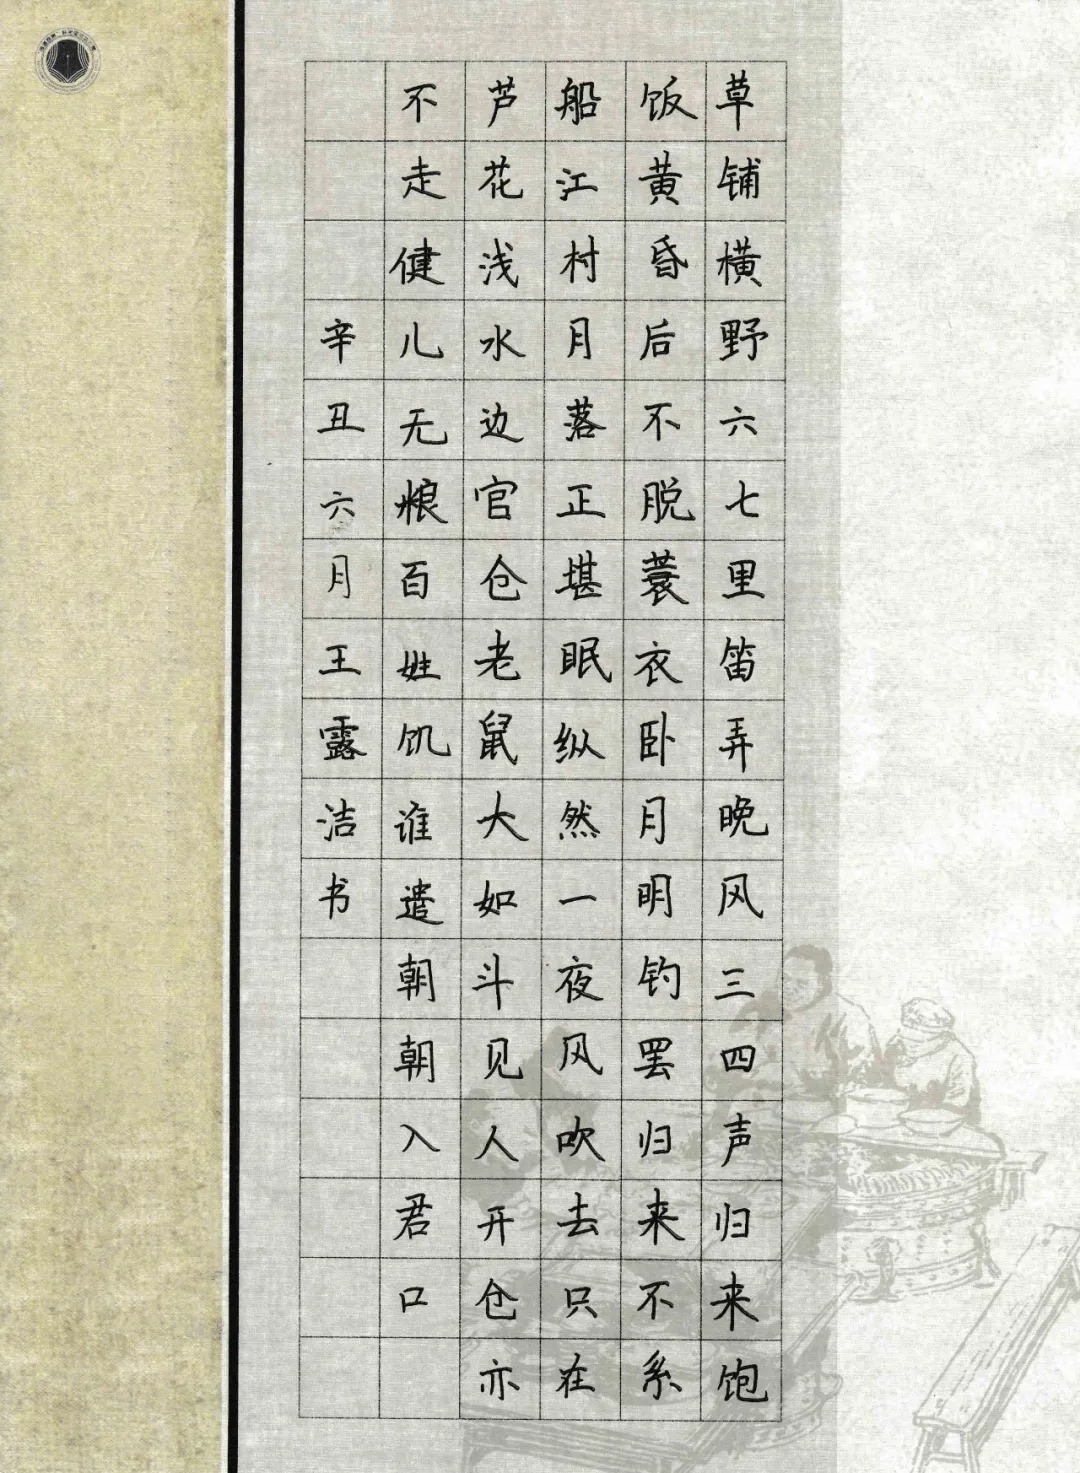 草铺横野六七里笛弄晚风三四声归来饱
饭黄昏后不脱蓑衣卧月明钓罢归来不系
船江村月落正堪眠纵然一夜风吹去只在
芦花浅水边官仓老鼠大如斗见人开仓亦
不走健儿无粮百姓饥谁遣朝朝入君口
辛丑六月王露洁书